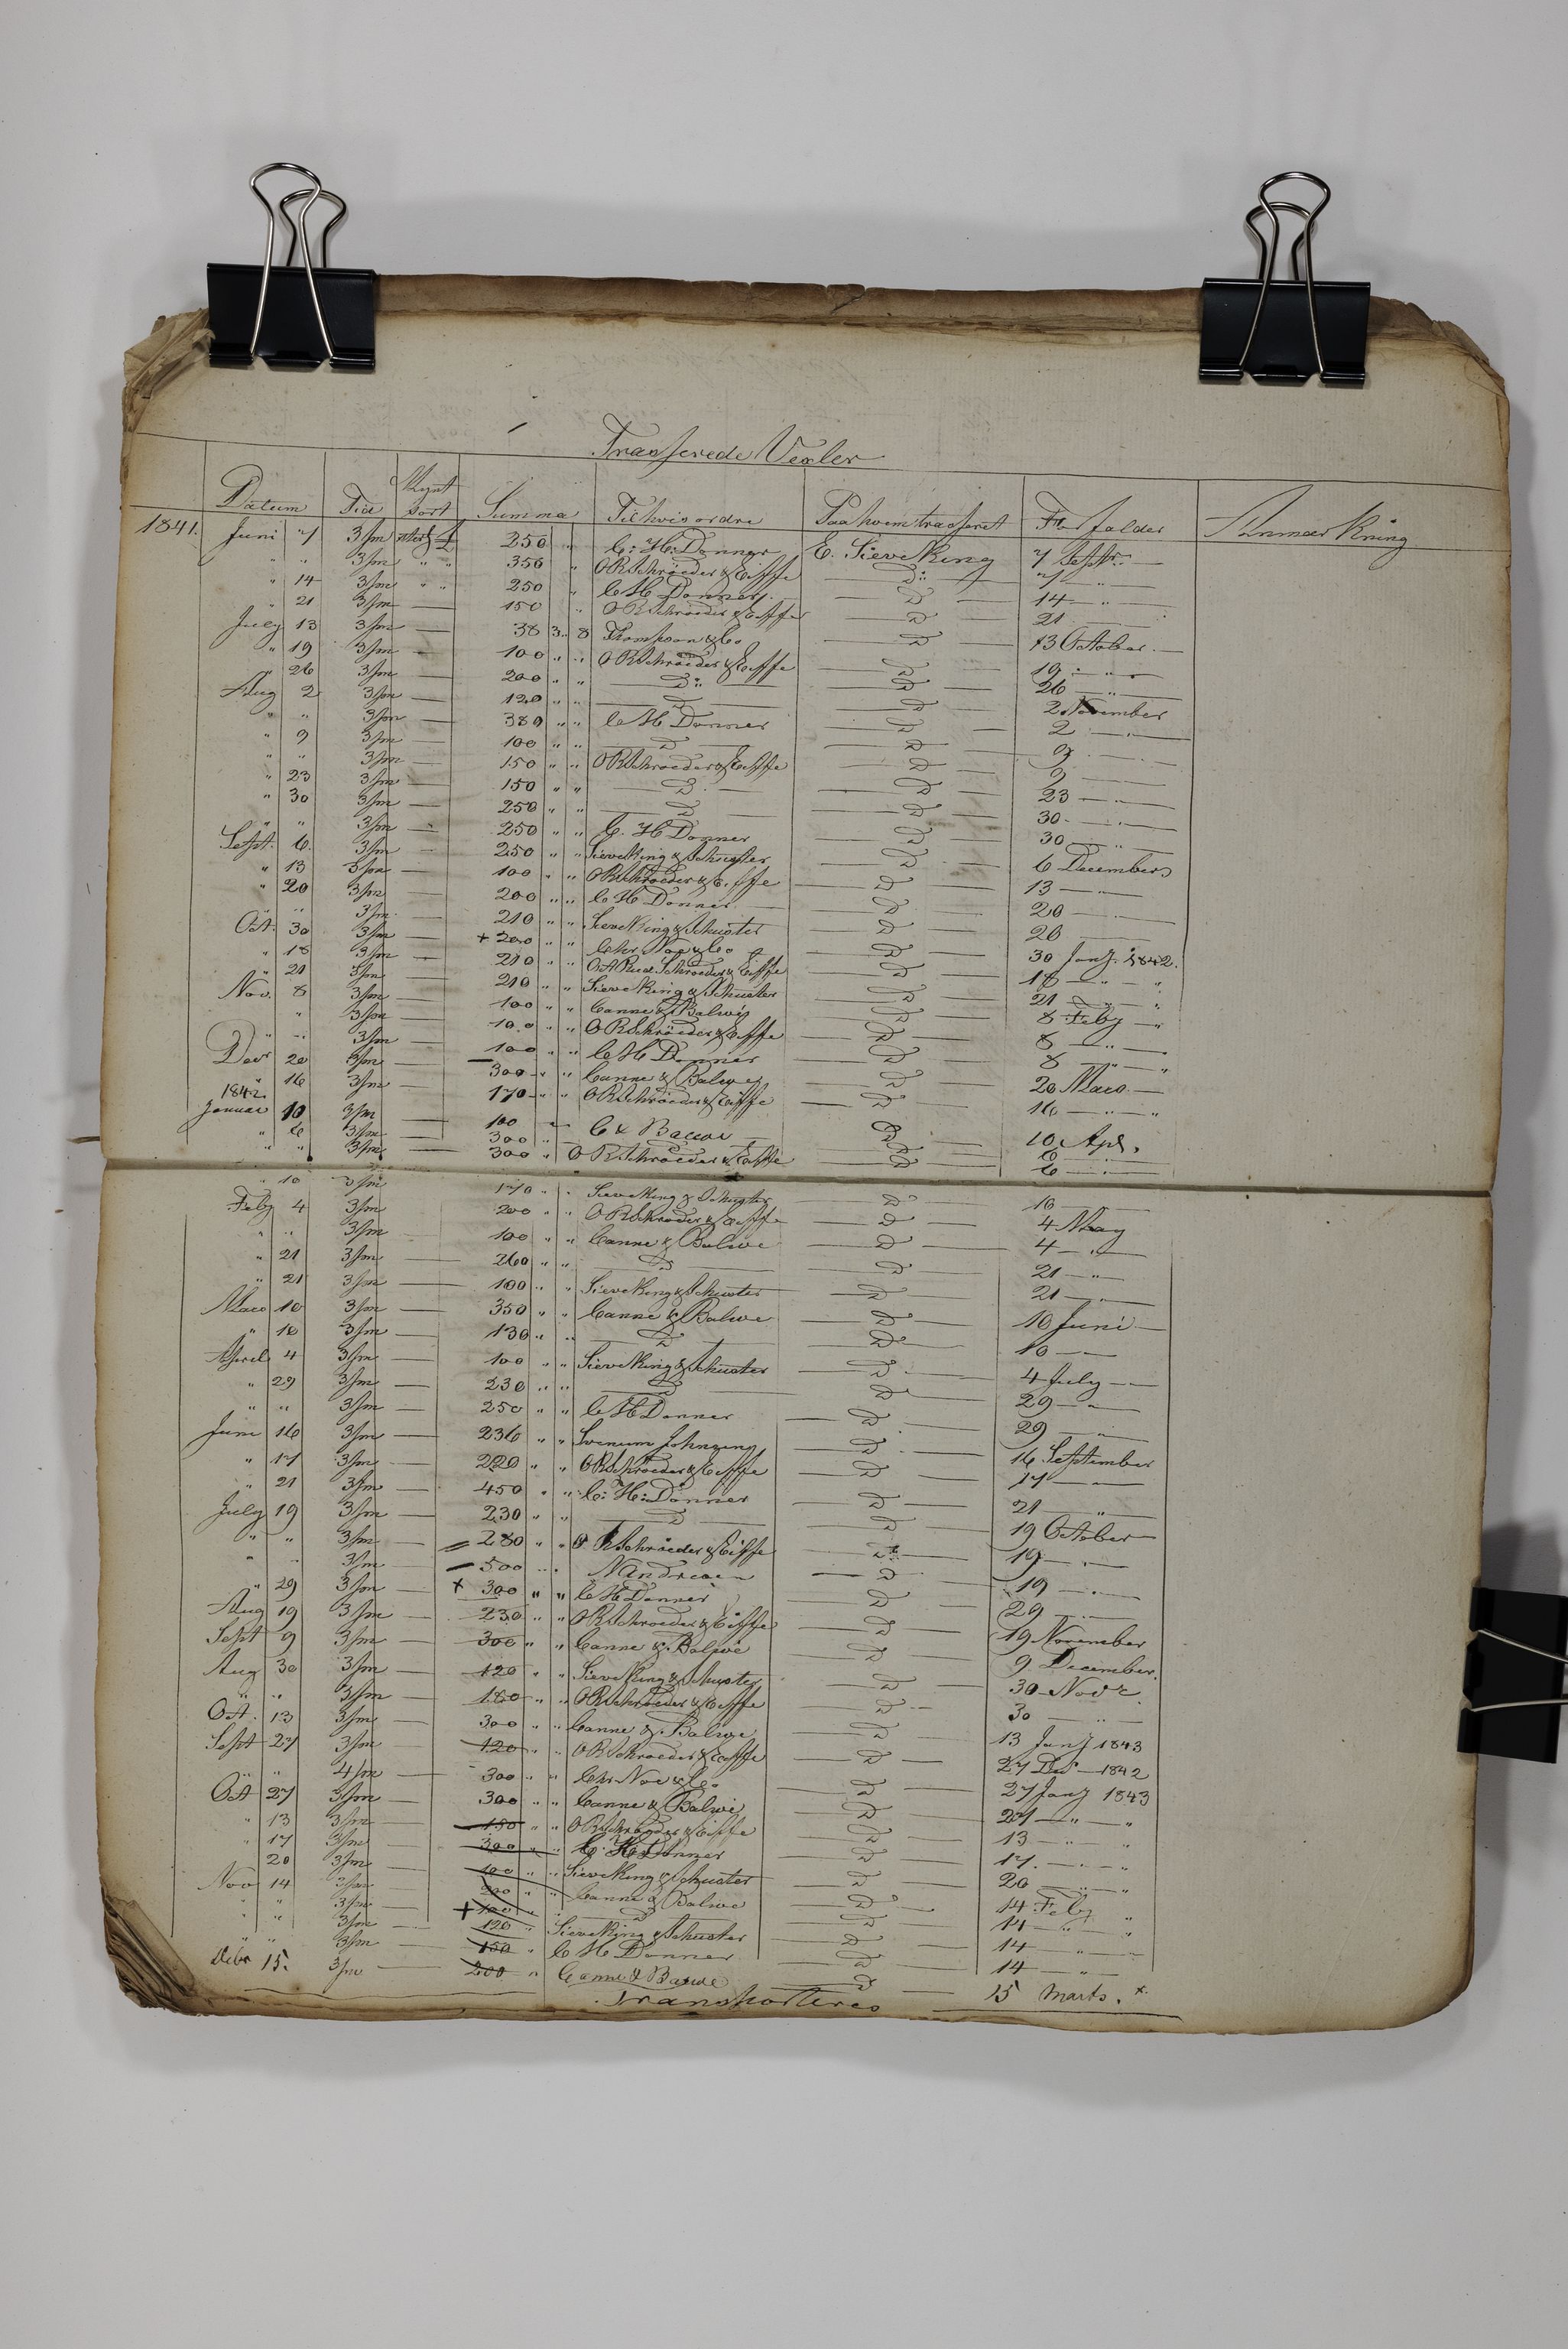 Trasserede Vexler
Datum Tid Mynt sort Summa Til hvis ordre Paa hvem trasseret Forfalder Anmærkning
1841. Juni 7 3/m Sterl £ 250 " C: H: Donner E. Sieveking 7 Septbr. —
" " 3/m " " 350 " O R Schröder & Eiffe — D: — 7 — "
" 14 3/m " " 250 " C H Donner — D — 14 — "
" 21 3/m — 150 " O R Schröder & Eiffe — D — 21 —
July 13 3/m — 38 3 " 8 Thompson & Co — D — 13 October —
" 19 3/m — 100 " " O R Schröder & Eiffe — D — 19 — "
" 26 3/m — 200 " " — D: — — D — 26 — "
Aug 2 3/m — 120 " " — D — — D — 2 November
" " 3/m — 380 " " C H Donner — D — 2 — "
" 9 3/m — 100 " " — D — — D — 9 —
" " 3/m — 150 " " O R Schröder & Eiffe — D — 9 —
" 23 3/m — 150 " " — D — — D — 23 — "
" 30 3/m — 250 " " — D — — D — 30 — "
" " 3/m — 250 " " C. H Donner — D — 30 — "
Sept. 6. 3/m — 250 " " Sieveking & Schuster — D — 6 December
" 13 3/m — 100 " " O R Schröder & Eiffe — D — 13 — "
" 20 3/m — 200 " " C H Donner — D — 20 —
" " 3/m — 210 " " Sieveking & Schuster — D — 20
Oct. 30 3/m — + 200 " " Chr Noe & Co — D — 30 Janj. 1842.
" 18 3/m — 210 " " O A Rud. Schröder & Eiffe — D — 18 — " — "
" 21 3/m — 210 " " Sieveking & Schuster — D — 21 — " — "
Nov. 8 3/m — 100 " " Canne & Balwe — D — 8 Feby — "
" 3/m — 100 " " O R Schröder & Eiffe — D — 8 — " —
" " 3/m — 100 " " C H Donner — D — 8 — " "
Decr 20 3/m — 300 " " Canne & Balwe — D — 20 Maro. —
" 16 3/m — 170 " " O R Schröder & Eiffe — D — 16 — " — "
1842.
Januar 10 3/m — 100 — C & Balwe — D — 10 Apl.
" 6 3/m — 300 " — D — 6 —
" " 3/m — 300 " O R Schröder & Eiffe — D — 6 —
" 10 3/m 170 " " Sieveking & Schuster — D — 10 —
Feby 4 3/m — 200 " " O R Schröder & Eiffe — D — 4 May
" " 3/m — 100 " " Canne & Balwe — D — 4 — "
" 21 3/m — 260 " " — D — — D — 21 — "
" 21 3/m — 100 " " Sieveking & Schuster — D — 21 — "
Maro 10 3/m — 350 " " Canne & Balwe — D — 10 Juni —
" 10 3/m — 130 " " — D — — D — 10 — —
April 4 3/m — 100 " " Sieveking & Schuster — D — 4 July —
" 29 3/m — 230 " " — D — — D — 29 — "
" " 3/m — 250 " " C H Donner — D — 29 — "
Juni 16 3/m — 236 " " — D — 16 September
" 17 3/m — 220 " " O R Schröder & Eiffe — D — 17 — —
" 21 3/m — 450 " " C: H: Donner — D — 21 — "
July 19 3/m — 230 " " — D — — D — 19 October
" " 3/m — = 280 " " O R Schröder & Eiffe — D — 19 — "
" " 3/m — 500 " " N Andresen — D — 19 — "
" 29 3/m — + 300 " " C H Donner — D — 29 — "
Aug 19 3/m — 230 " " O R Schröder & Eiffe — D — 19 November
Sept 9 3/m — 300 " " Canne & Balwe — D — 9 December.
Aug 30 3/m — 120 " " Sieveking & Schuster — D — 30 Novr.
" " 3/m — 180 " " O R Schröder & Eiffe — D — 30 — "
Oct. 13 3/m — 300 " " Canne & Balwe — D — 13 Janj 1843
Sept 27 3/m — 120 " " O R Schröder & Eiffe — D — 27 Dec — 1842
" " 4/m — 300 " " Chr Noe & Co — D — 27 Janj 1843
Oct 27 3/m — 300 " " Canne & Balwe — D — 27 — " — "
" 13 3/m — 150 " " O R Schröder & Eiffe — D — 13 — " "
" 17 3/m — 300 " " C. H Donner — D — 17. — " — "
" 20 3/m — 100 " " Sieveking & Schuster — D — 20 — " "
Nov 14 3/m — 200 " " Canne & Balwe — D — 14 Feby "
" " 3/m — + 100 " — D — — D — 14 — " "
" " 3/m — 120 " Sieveking & Schuster — D — 14 — " —
" " 3/m — 150 " C H Donner — D — 14 — "
Debr 15. 3/m — 200 " Canne & Balwe — D — 15 Marts.
Transporteres